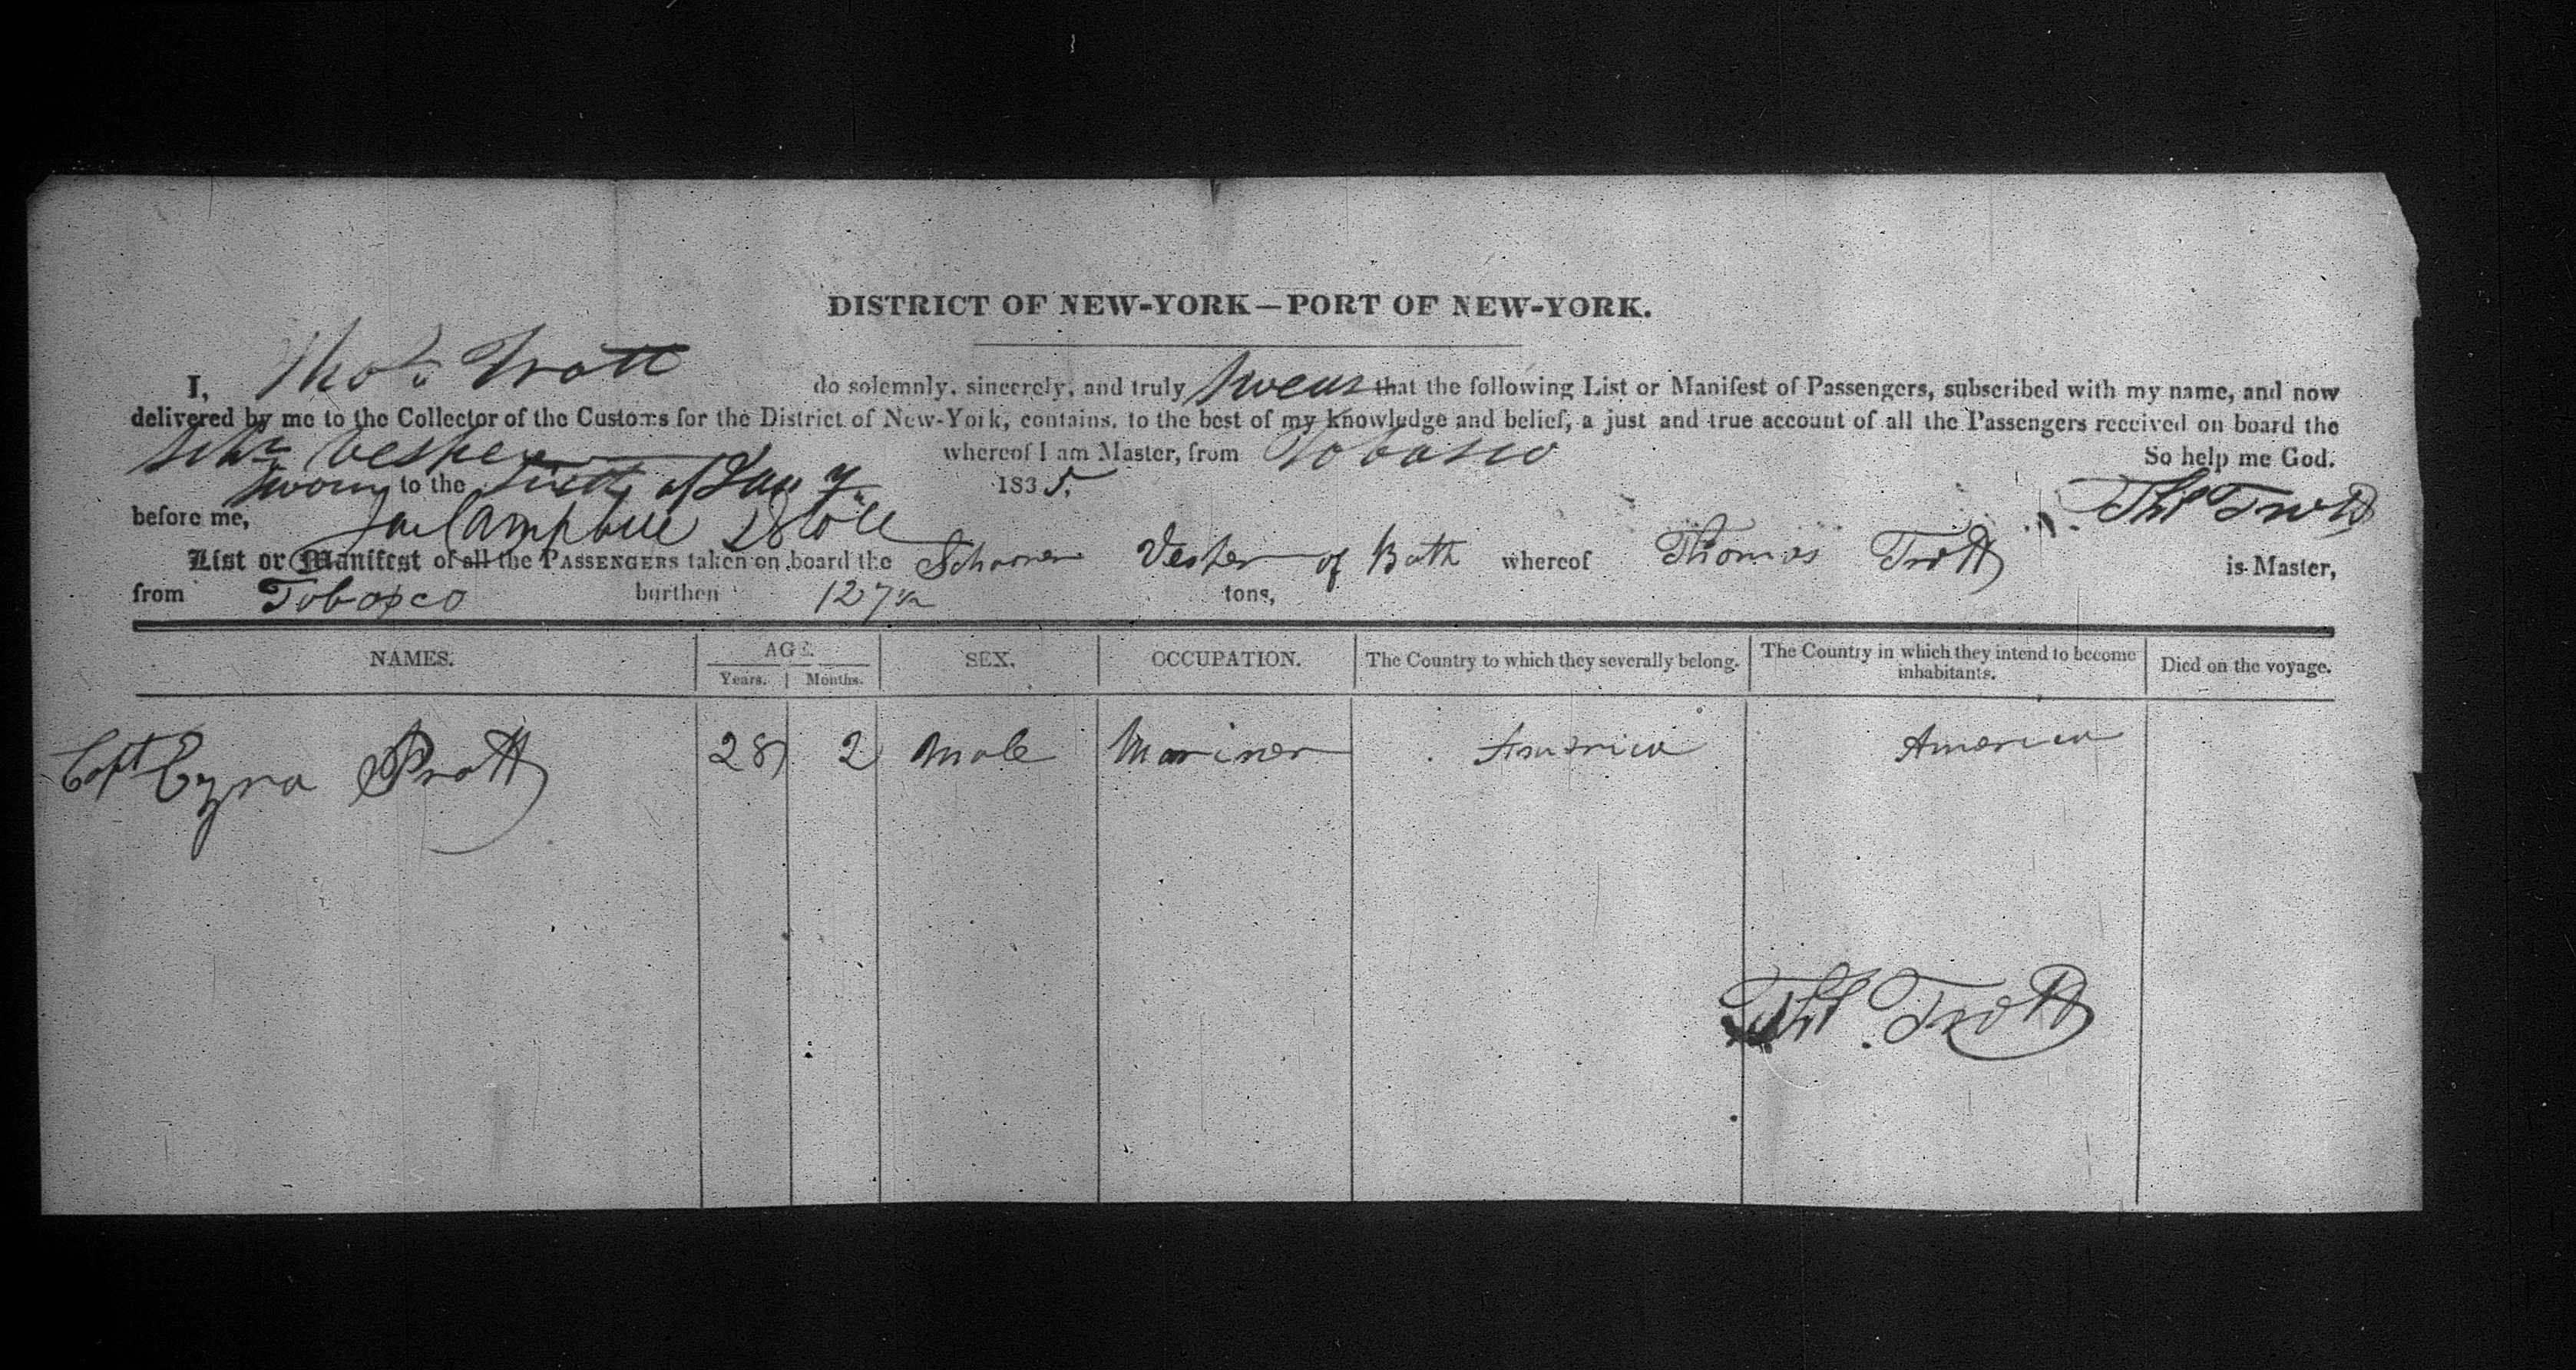 DISTRICT OF NEW-YORK—PORT OF NEW-YORK.
I, Thos. Trott do solemnly, sincerely, and truly swear that the following List or Manifest of Passengers, subscribed with my name, and now
delivered by me to the Collector of the Customs for the District of New-York, contains, to the best of my knowledge and belief, a just and true account of all the Passengers received on board the
Schr Vesper whereof I am Master, from Tobasco So help me God.
Sworn to the of Jany 1835. Thos Trott
before me,
List or Manifest of all the PASSENGERS taken on board the Schooner Vesper of Bath whereof Thomas Trott is Master,
from Tobasco burthen 127 tons,
NAMES. AGE. SEX. OCCUPATION. The Country to which they severally belong. The Country in which they intend to become inhabitants. Died on the voyage.
Years. Months.
Capt Ezra Pratt 28 2 Male Mariner America America
Thos Trott